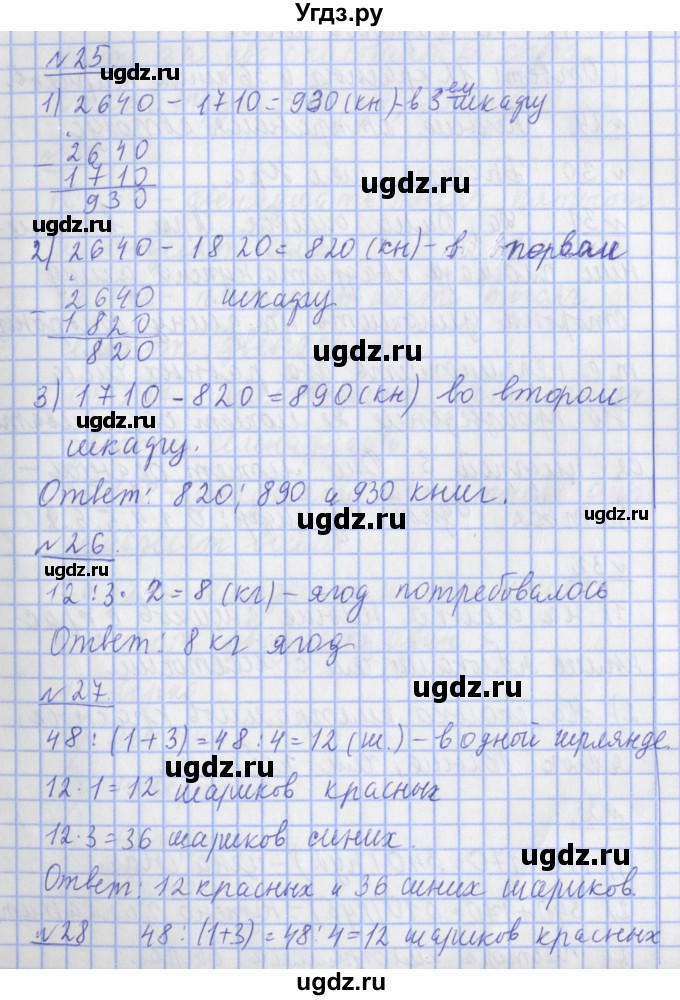 Угдз.ру
№25
1) 2640 - 1710 = 930 (кн) - в 3ем шкафу
- 2640
1710
930
2) 2640 - 1820 = 820 (кн) - в первом
- 2640 шкафу
1820
820
3) 1710 - 820 = 890 (кн) во втором
шкафу.
Ответ: 820; 890 и 930 книг.
№26.
12 : 3 · 2 = 8 (кг) - ягод потребовалось
Ответ: 8 кг ягод
№27.
48 : (1+3) = 48 : 4 = 12 (ш.) - в одной гирлянде.
12 · 1 = 12 шариков красных
12 · 3 = 36 шариков синих.
Ответ: 12 красных и 36 синих шариков.
№28 48 : (1+3) = 48 : 4 = 12 шариков красных
ugdz.ru
ugdz.ru
ugdz.ru
ugdz.ru
ugdz.ru
ugdz.ru
ugdz.ru
ugdz.ru
ugdz.ru
ugdz.ru
ugdz.ru
ugdz.ru
ugdz.ru